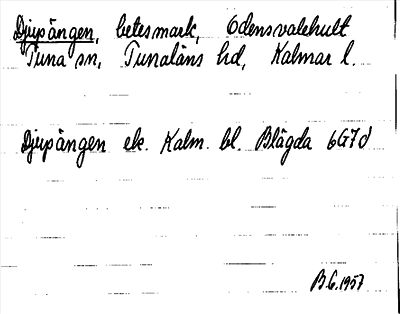 Djupängen, betesmark, Odensvalehult
Tuna sn, Tunaläns hd, Kalmar l.
Djupängen ek. Kalm. bl. Blägda 6G7d
B.G. 1957